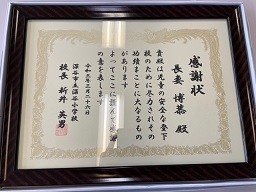 感謝状
長妻 博恭 殿
貴殿は児童の安全な登下
校のために尽力されその
功績まことに大なるもの
があります
よってここに謹んで感謝
の意を表します
令和三年三月二十六日
深谷市立深谷小学校
校長 新井 英男